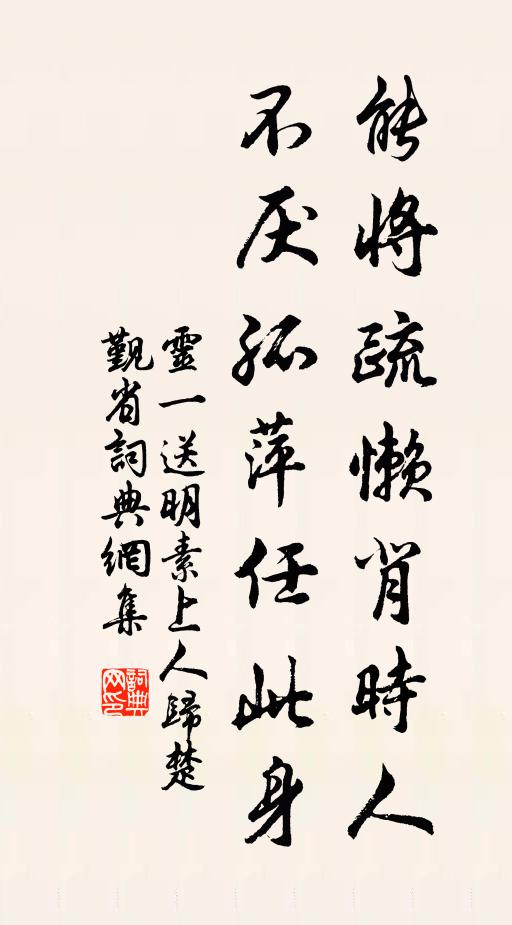 能將疏懶背時人
不厌孤萍任此身
靈一送明素上人歸楚
覲省詞典網集
詞典网印